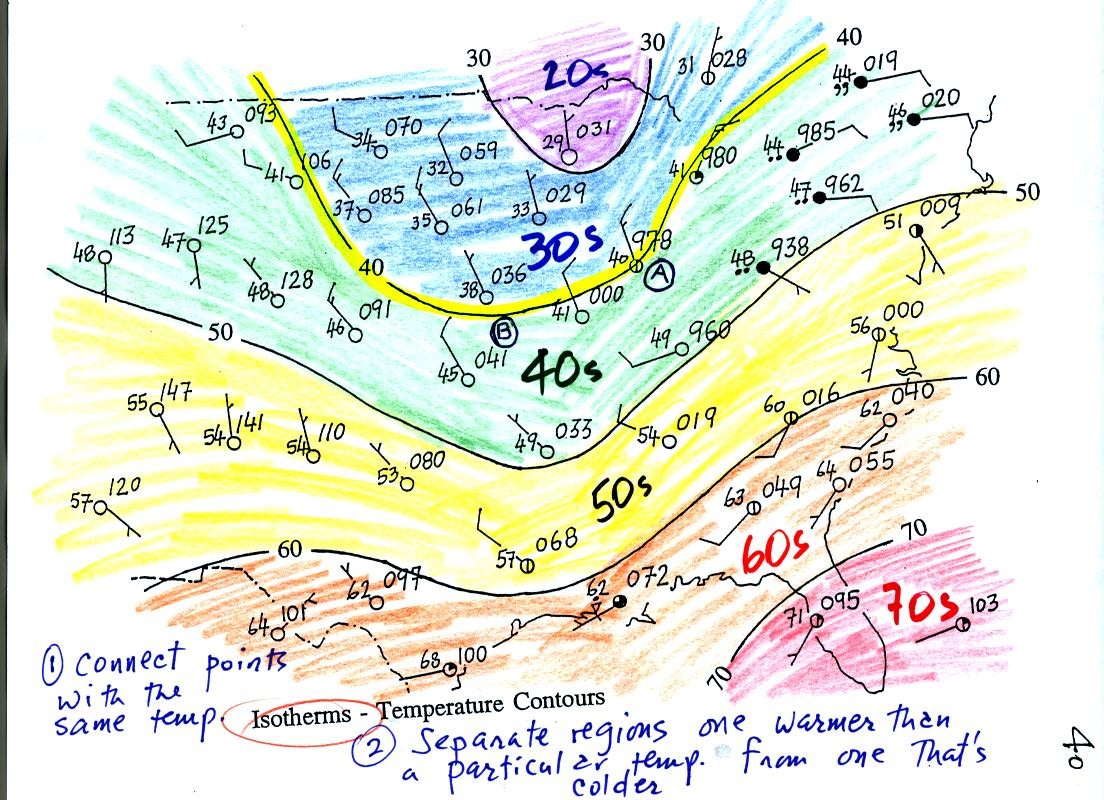 30 30 40
20s
31 028
44 019
43 093
34 070
29 031
46 020
41 106
32 059
44 985
41 980
37 085
35 061
33 029
47 962
50
48 113
47 125
30s
40 978
A
51 009
48 938
48 128
40
38 036
41 000
B
46 091
50
45 041
40s
49 960
56 000
60
55 147
54 141
54 110
53 080
49 033
54 019
60 016
62 040
57 120
50s
63 049
64 055
60
57 068
60s
70
62 097
62 072
64 101
71 095
70s 103
68 100
70
① Connect points
with the
same temp.
Isotherms - Temperature Contours
② Separate regions one warmer than
a particular temp. from one That's
colder
40